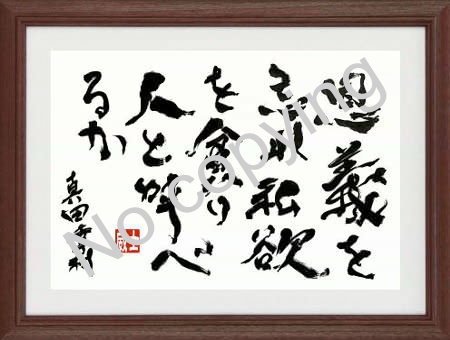 恩義を
忘れ私欲
を貪り
人と呼べ
るか
真田幸村
No copying